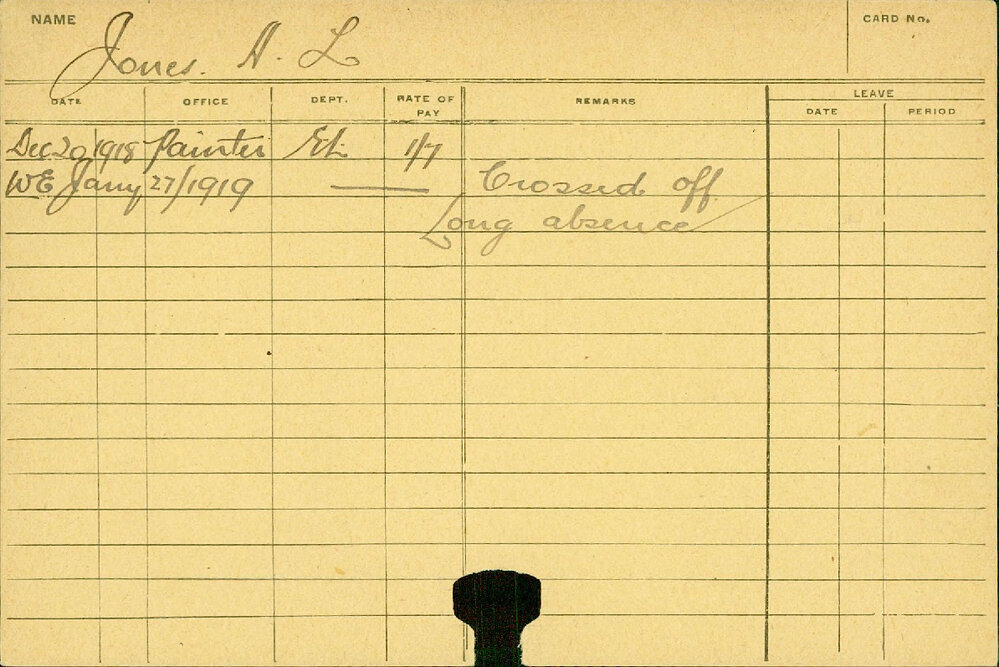 NAME
Jones. A. L
CARD No.
DATE OFFICE DEPT. RATE OF PAY REMARKS LEAVE
DATE PERIOD
Dec 20 1918 Painter 1/7
WE Jany 27/1919 Crossed off
Long absence